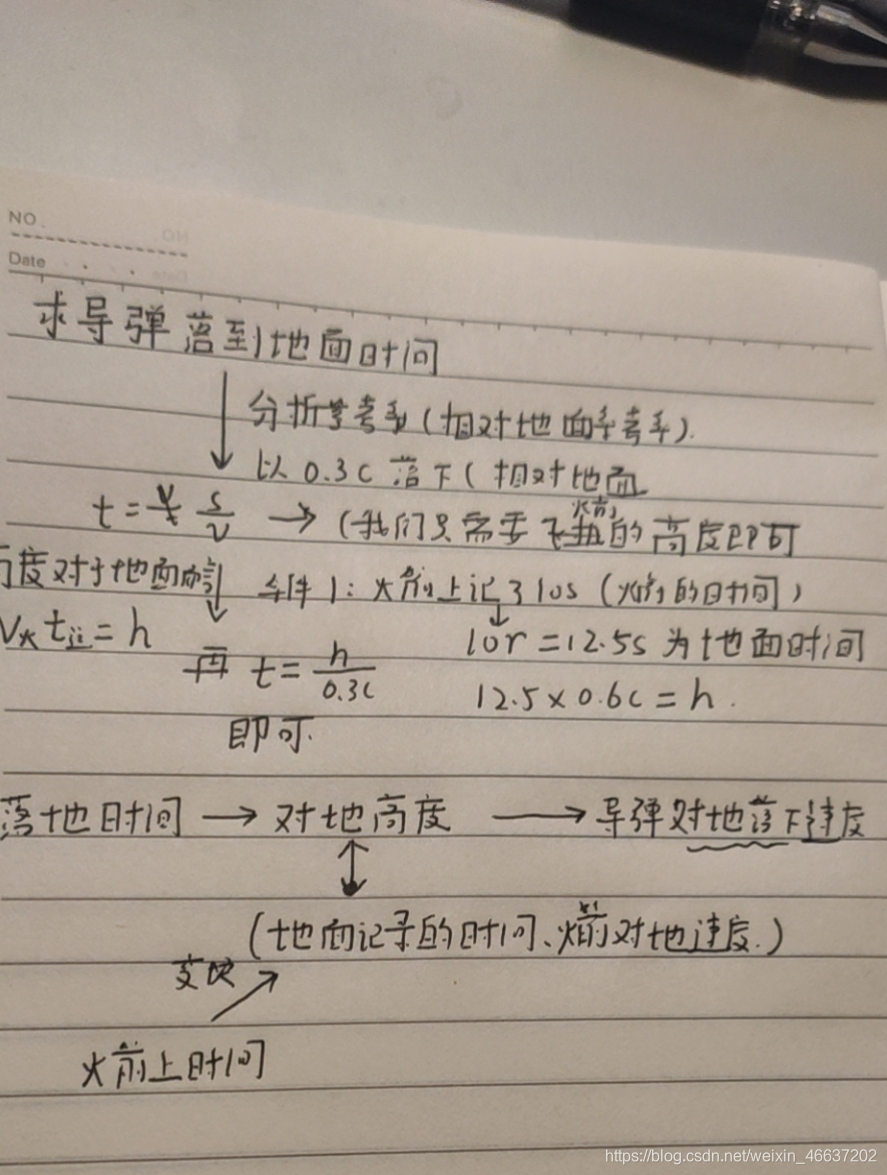 NO.
Date
求导弹落到地面时间
分析参考系(相对地面参考系).
以0.3c落下(相对地面
t = s/v → (我们只需要飞 火箭的高度即可
度对于地面而言 条件1:火箭上记了10s(火箭的时间)
V火 t = h 10r = 12.5s 为地面时间
再 t = h/0.3c 12.5×0.6c = h.
即可.
落地时间 → 对地高度 → 导弹对地落下速度
(地面记录的时间、火箭对地速度.)
变换
火箭上时间
https://blog.csdn.net/weixin_46637202